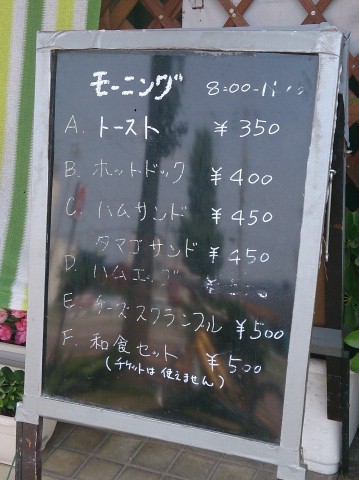 モーニング 8:00-11:00
A. トースト ¥350
B. ホットドック ¥400
C. ハムサンド ¥450
タマゴサンド ¥450
D. ハムエッグ
E. チーズスクランブル ¥500
F. 和食セット ¥500
(チケットは使えません)